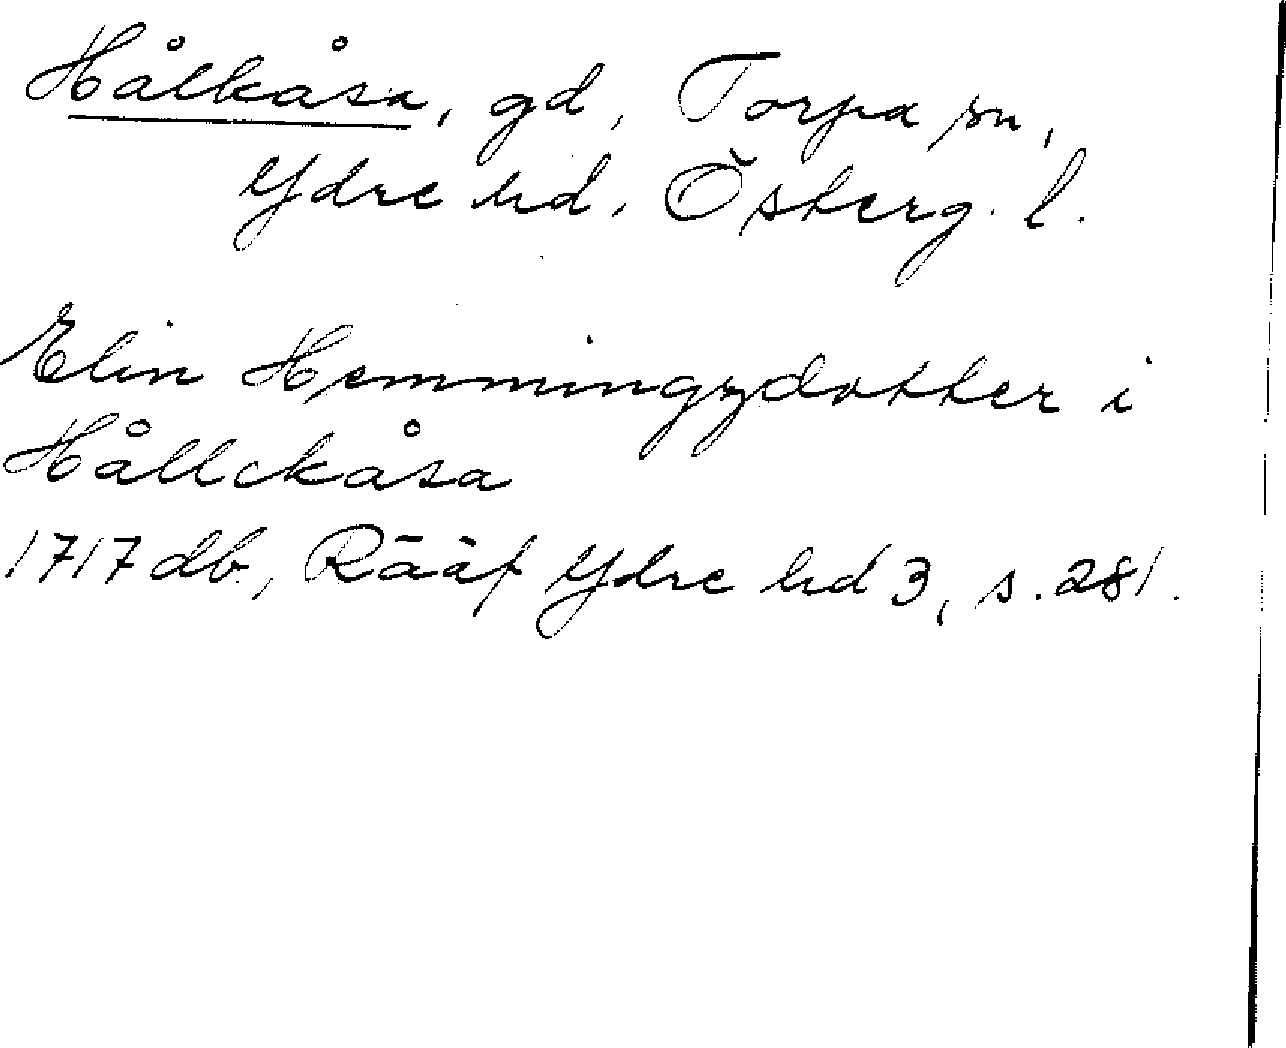 Hålkåsa, gd, Torpa sn,
Ydre hd, Österg. l.
Elin Hemmingzdotter i
Hållckåsa
1717 db, Rääf Ydre hd 3, s. 281.